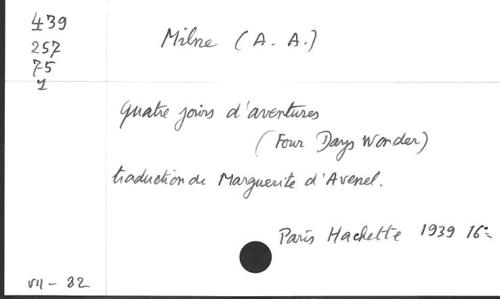 439
257
75
1
Milne (A. A.)
Quatre jours d'aventures
(Four Days Wonder)
traduction de Marguerite d'Avenel.
Paris Hachette 1939 16°
VII - 82